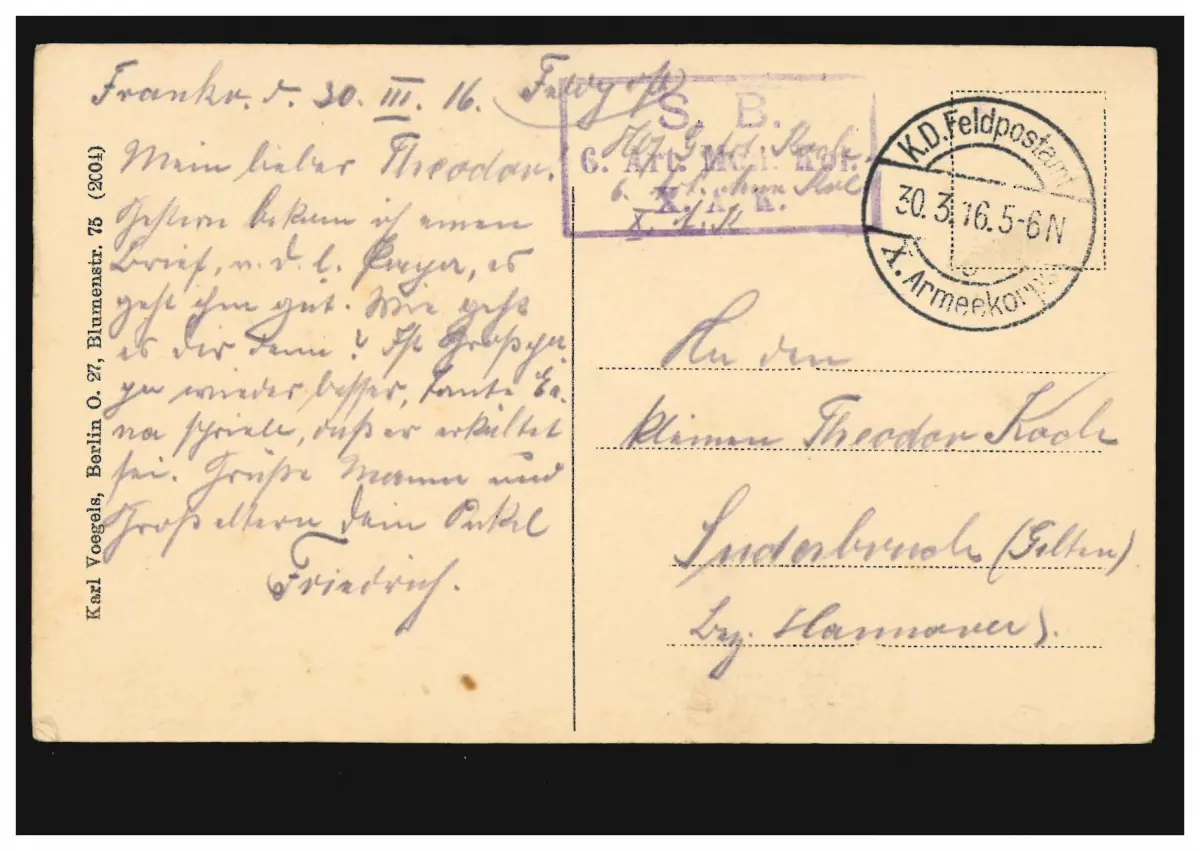 Frankr. d. 30. III. 16.
Mein lieber Theodor.
Gestern bekam ich einen
Brief, v. d. l. Papa, es
geht ihm gut. Wie geht
es dir denn? Ist Großpa-
pa wieder besser, Tante
na schrieb, daß er erkältet
sei. Grüße Mama und
Großeltern dein Onkel
Friedrich.
Karl Voegels, Berlin O. 27, Blumenstr. 75 (2004)
Feldpost
S. B.
6. Art. Mun. Kol.
X. A. K.
Koch
6. Art. Kol
X. A. K
K.D. Feldpostamt
30.3.16.5-6N
X. Armeekorps
An den
kleinen Theodor Koch
Suderbruch (Gilten)
Bez. Hannover).